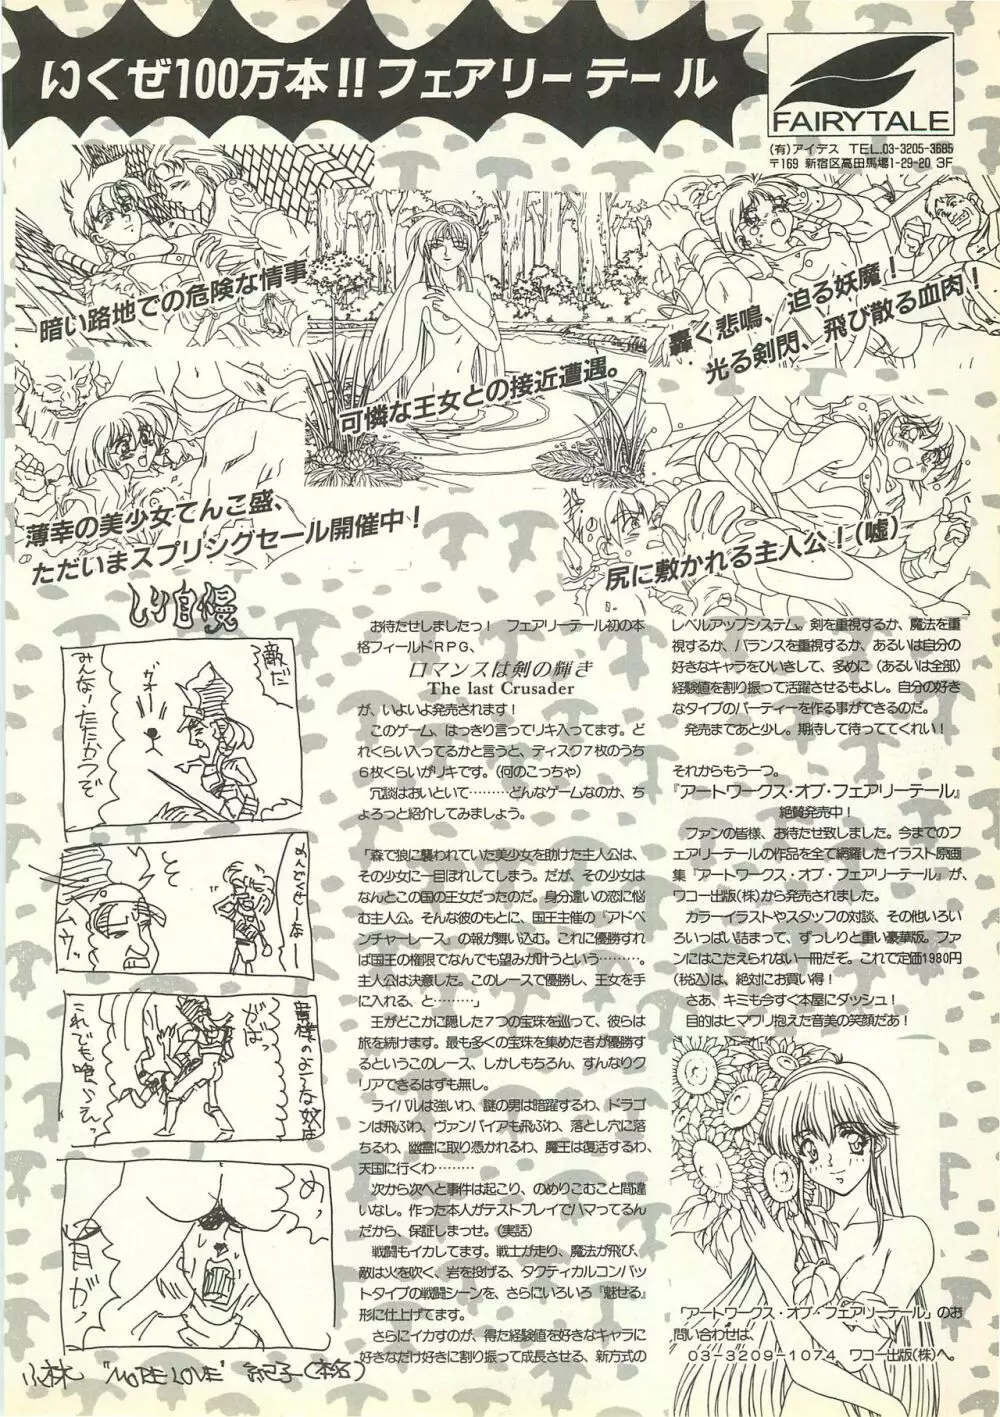 いくぜ100万本!!フェアリーテール
FAIRYTALE
(有)アイデス TEL.03-3205-3685
〒169 新宿区高田馬場1-29-20 3F
暗い路地での危険な情事
可憐な王女との接近遭遇。
轟く悲鳴、迫る妖魔！
光る剣閃、飛び散る血肉！
薄幸の美少女てんこ盛、
ただいまスプリングセール開催中！
尻に敷かれる主人公！(嘘)
自慢
敵だ
みんな！たたかうぞ
めんどくせーなー
これでも喰らえっ
め、
目がっ
小林 "MORE LOVE" 紀子(本名)
お待たせしましたっ！ フェアリーテール初の本
格フィールドRPG、
ロマンスは剣の輝き
The last Crusader
が、いよいよ発売されます！
このゲーム、はっきり言ってリキ入ってます。ど
れくらい入ってるかと言うと、ディスク7枚のうち
6枚くらいがリキです。(何のこっちゃ)
冗談はおいといて………どんなゲームなのか、ち
ょろっと紹介してみましょう。
「森で狼に襲われていた美少女を助けた主人公は、
その少女に一目ぼれしてしまう。だが、その少女は
なんとこの国の王女だったのだ。身分違いの恋に悩
む主人公。そんな彼のもとに、国王主催の『アドベ
ンチャーレース』の報が舞い込む。これに優勝すれ
ば国王の権限でなんでも望みが叶うという………。
主人公は決意した。このレースで優勝し、王女を手
に入れる、と………」
王がどこかに隠した7つの宝珠を巡って、彼らは
旅を続けます。最も多くの宝珠を集めた者が優勝す
るというこのレース、しかしもちろん、すんなりク
リアできるはずも無し。
ライバルは強いわ、謎の男は暗躍するわ、ドラゴ
ンは飛ぶわ、ヴァンパイアも飛ぶわ、落とし穴に落
ちるわ、幽霊に取り憑かれるわ、魔王は復活するわ、
天国に行くわ………
次から次へと事件は起こり、のめりこむこと間違
いなし。作った本人がテストプレイでハマってるん
だから、保証しまっせ。(実話)
戦闘もイカしてます。戦士が走り、魔法が飛び、
敵は火を吹く、岩を投げる、タクティカルコンバッ
トタイプの戦闘シーンを、さらにいろいろ『魅せる』
形に仕上げてます。
さらにイカすのが、得た経験値を好きなキャラに
好きなだけ好きに割り振って成長させる、新方式の
レベルアップシステム。剣を重視するか、魔法を重
視するか、バランスを重視するか、あるいは自分の
好きなキャラをひいきして、多めに(あるいは全部)
経験値を割り振って活躍させるもよし。自分の好き
なタイプのパーティーを作る事ができるのだ。
発売まであと少し。期待して待っててくれい！
それからもう一つ。
『アートワークス・オブ・フェアリーテール』
絶賛発売中！
ファンの皆様、お待たせ致しました。今までのフ
ェアリーテールの作品を全て網羅したイラスト原画
集『アートワークス・オブ・フェアリーテール』が、
ワコー出版(株)から発売されました。
カラーイラストやスタッフの対談、その他いろい
ろいっぱい詰まって、ずっしりと重い豪華版。ファ
ンにはこたえられない一冊だぞ。これで定価1980円
(税込)は、絶対にお買い得！
さあ、キミも今すぐ本屋にダッシュ！
目的はヒマワリ抱えた音美の笑顔だあ！
「アートワークス・オブ・フェアリーテール」のお
問い合わせは、
03-3209-1074 ワコー出版(株)へ。